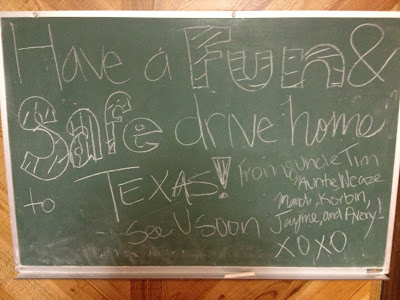 Have a Fun &
Safe drive home
to TEXAS!
from uncle Tim
Auntie Weaze
Mardi, Korbin,
Jayme, and Avery!
see U soon
XOXO